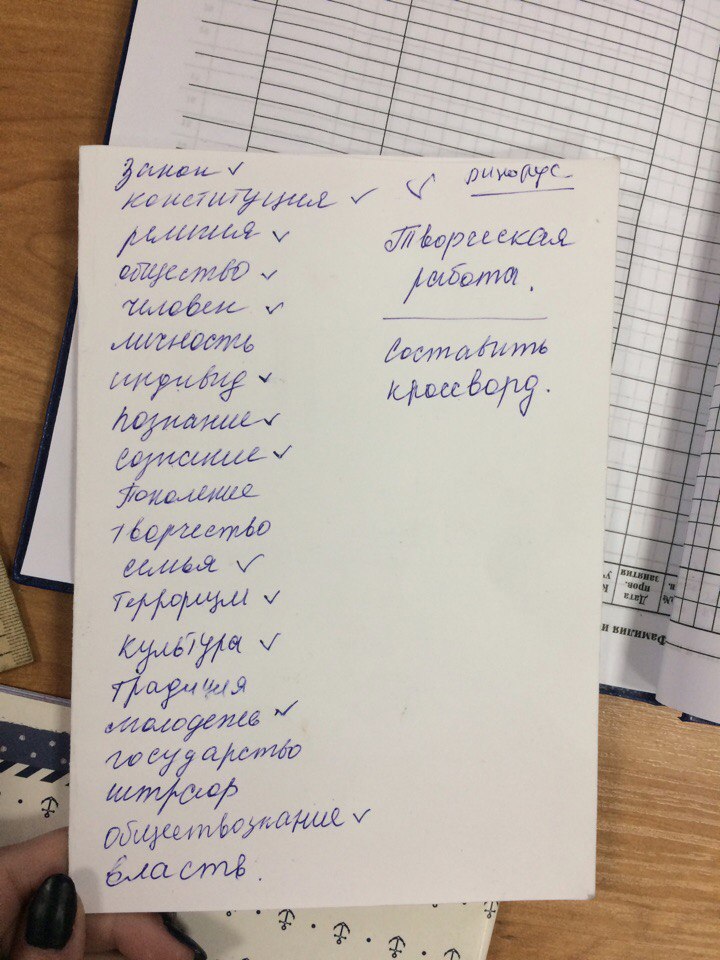 Закон ✓
конституция ✓
религия ✓
общество ✓
человек ✓
личность
индивид ✓
познание ✓
сознание ✓
Поколение
творчество
семья ✓
терроризм ✓
культура ✓
традиция
молодежь ✓
государство
обществознание ✓
власть.
✓
Творческая
работа.
Составить
кроссворд.
Фамилия и
Дата
пров.
занятия
№